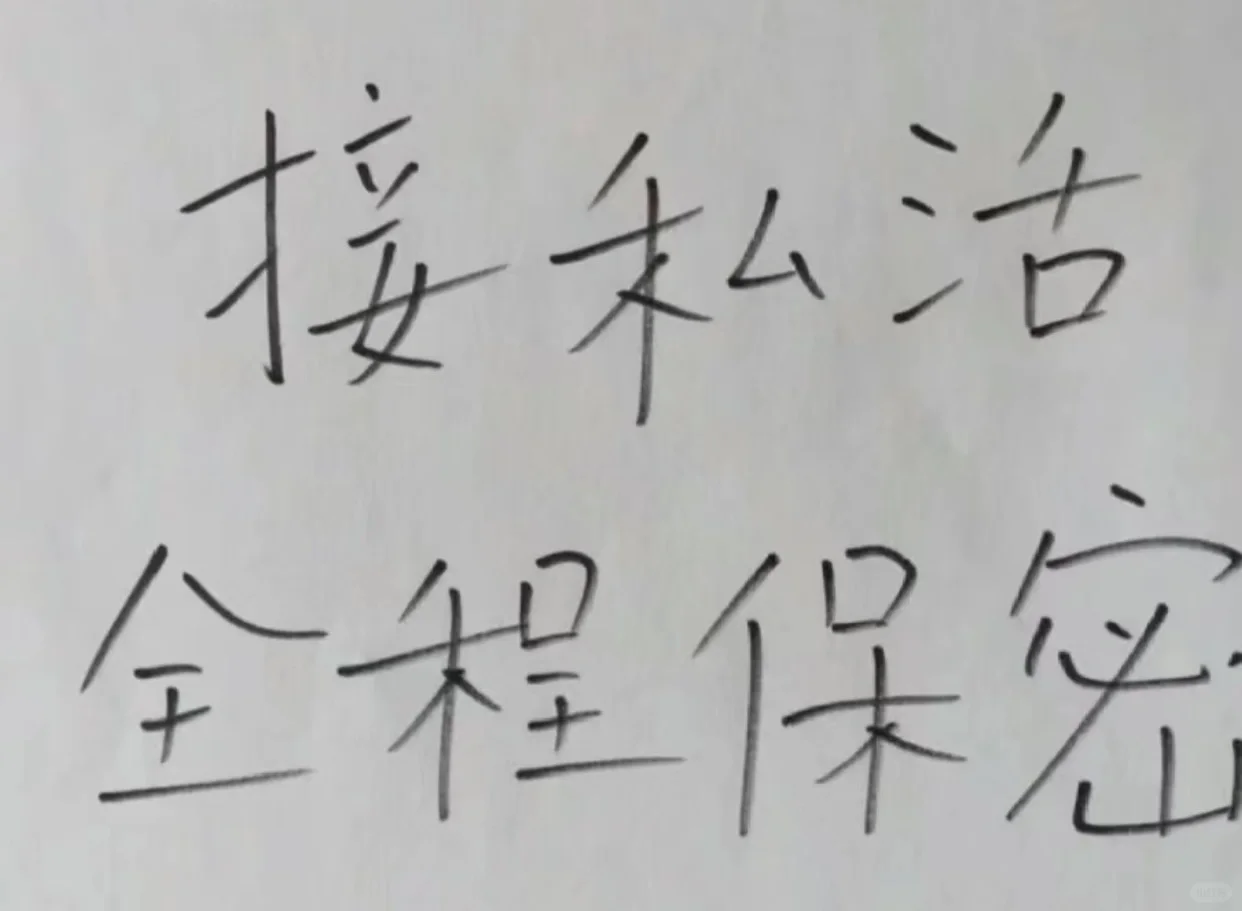 接私活
全程保密